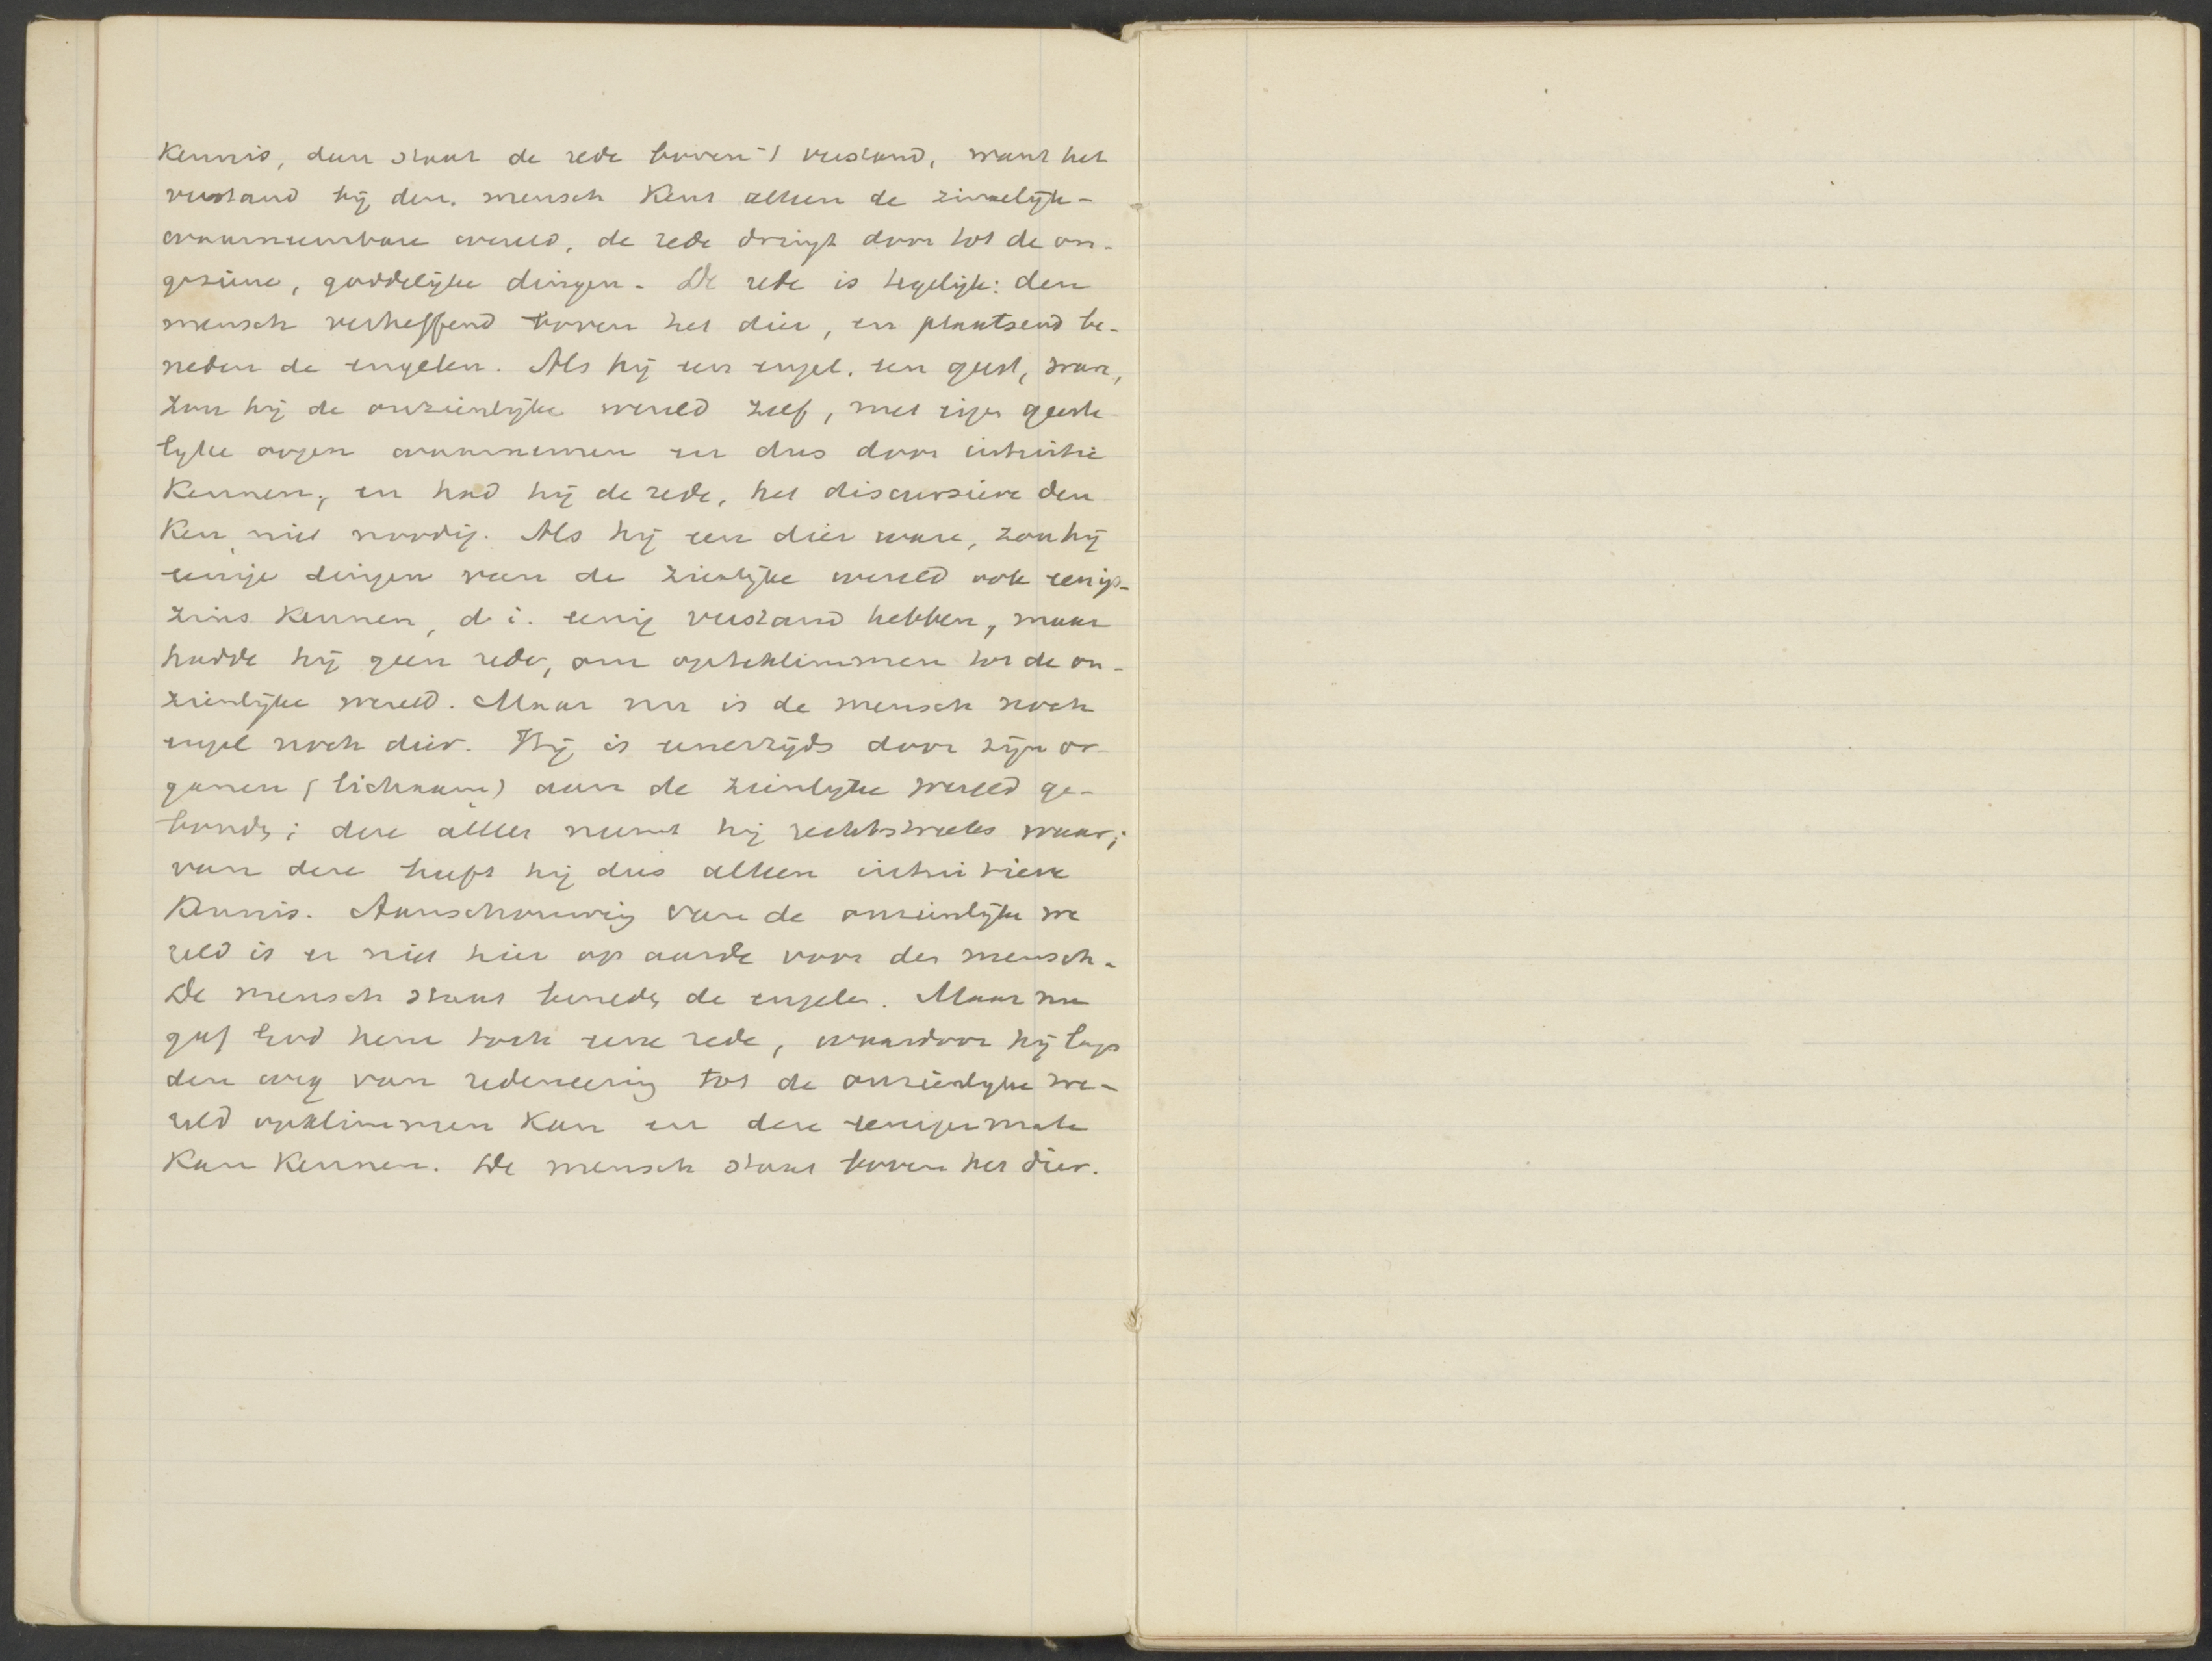 kennis, dan staat de rede boven 't verstand, want het
verstand bij den mensch kent alleen de zinnelijk-
waarneembare wereld, de rede dringt door tot de on-
geziene, goddelijke dingen. De rede is tegelijk: den
mensch verheffend boven het dier, en plaatsend be-
neden de engelen. Als hij een engel, een geest, ware,
zou hij de onzienlijke wereld zelf, met zijn geeste
lijke oogen waarnemen en dus door intuitie
kennen, en had hij de rede, het discursieve den
ken niet noodig. Als hij een dier ware, zou hij
eenige dingen van de zienlijke wereld ook eenigs-
zins kennen, d.i. eenig verstand hebben, maar
hadde hij geen rede, om opteklimmen tot de on-
zienlijke wereld. Maar nu is de mensch noch
engel noch dier. Hij is eenerzijds door zijn or-
ganen (lichaam) aan de zienlijke wereld ge-
bonden; deze alleen neemt hij rechtstreeks waar;
van deze heeft hij dus alleen intuitieve
kennis. Aanschouwing van de onzienlijke we
reld is er niet hier op aarde voor den mensch.
De mensch staat beneden de engelen. Maar nu
gaf God hem toch eene rede, waardoor hij langs
den weg van redeneering tot de onzienlijke we-
reld opklimmen kan en deze eenigermate
kan kennen. De mensch staat boven het dier.